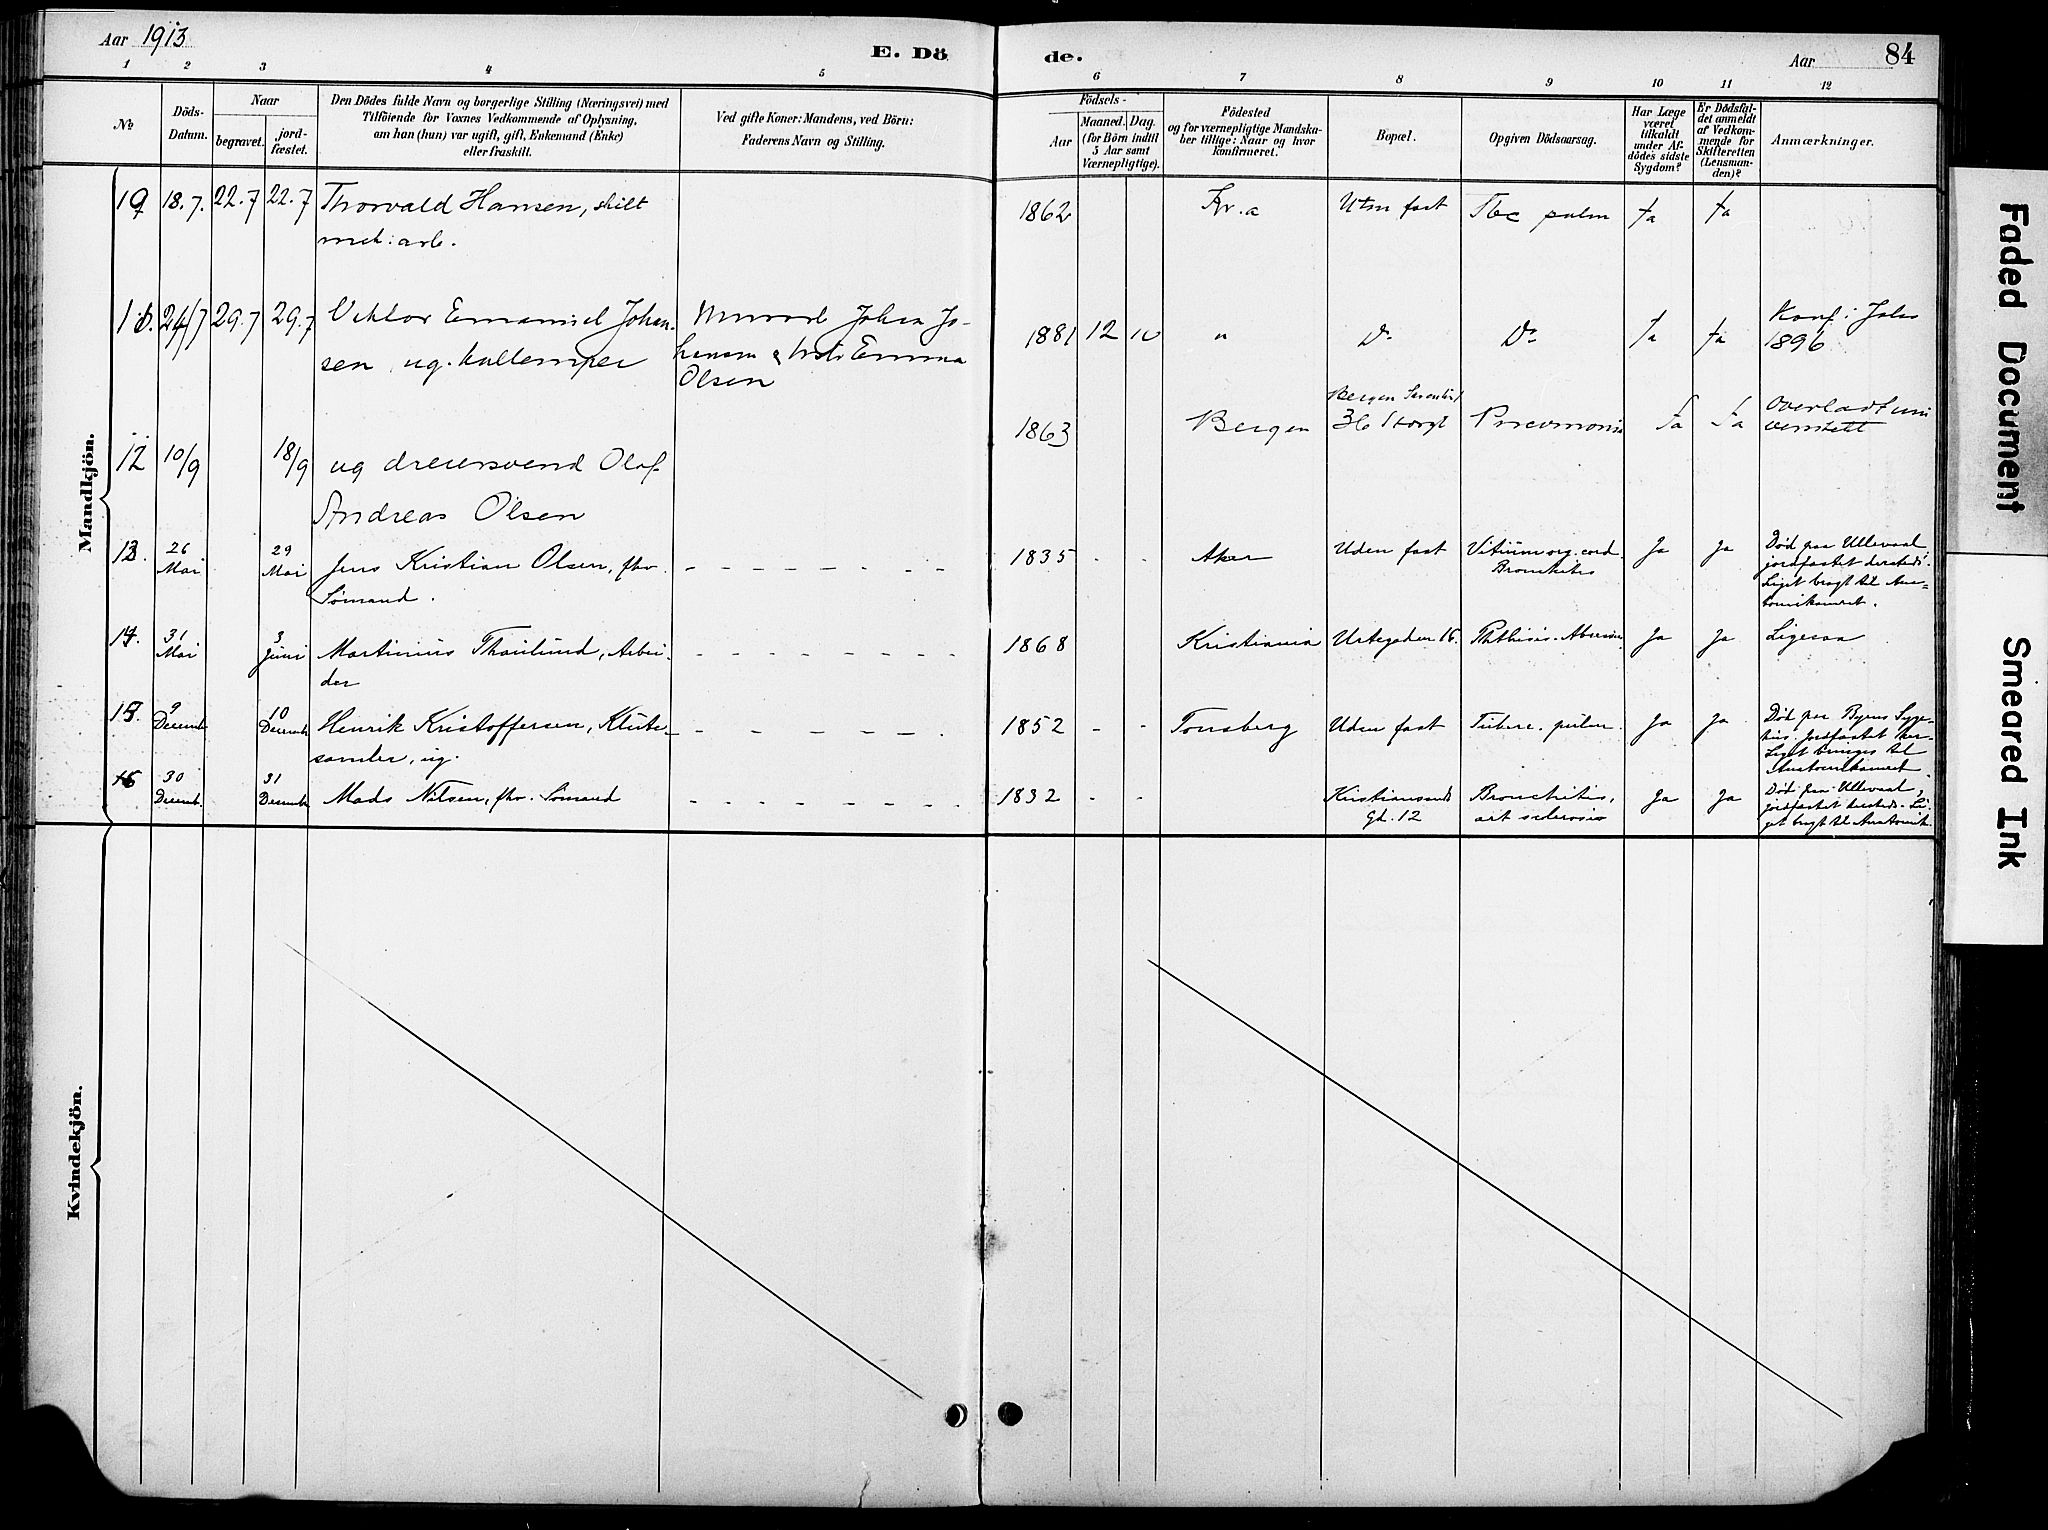 Aar 1913
E. Dö
de.
Aar
84
1 2 3 4 5 6 7 8 9 10 11 12
№
Döds-
Datum.
Naar
begravet.
jord-
fæstet.
Den Dödes fulde Navn og borgerlige Stilling (Næringsvei) med
Tilföiende for Voxnes Vedkommende af Oplysning,
om han (hun) var ugift, gift, Enkemand (Enke)
eller fraskilt.
Ved gifte Koner: Mandens, ved Börn:
Faderens Navn og Stilling.
Födsels-
Aar
Maaned. Dag.
(for Börn indtil
5 Aar samt
Værnepligtige).
Födested
og for værnepligtige Mandska-
ber tillige: Naar og hvor
konfirmeret.
Bopæl.
Opgiven Dödsaarsag.
Har Læge
været
tilkaldt
under Af-
dödes sidste
Sygdom?
Er Dödsfal-
det anmeldt
af Vedkom-
mende for
Skifteretten
(Lensman-
den)?
Anmærkninger.
Mandkjön.
18.7. 22.7 22.7 Thorvald Hansen, skilt 1862 Kr.a Uten fast Tbc pulm Ja Ja
met: arb.
24/7 29.7 29.7 Viktor Emanuel Johan- Murard Johan Jo- 1881 12 10 " Do Do Ja Ja Konf: Jakr
1896
sen, ug. hansen & Emma
Olsen
12 10/9 18/9 ug dreiersvend Olaf 1863 Bergen Bergen
36 Storgt Pneumonia Ja Ja Overladt uni
versitett
Andreas Olsen
13. 26
Mai 29
Mai Jens Kristian Olsen, fhv. - - - - - - - - 1835 - - Aker Uden fast Vitium org. cord.
Bronchitis Ja Ja Død paa Ullevaal,
jordfæstet dersteds.
Liget bragt til Ana-
tomikamret.
Sømand.
14. 31
Mai 3
Juni Martinius Thoilund, Arbei- - - - - - - - - - 1868 Kristiania Urtegaden 16. Phthisis. Ja Ja Ligesaa
der
15. 9
Decemb. 10
Decemb. Henrik Kristoffersen, Klude- - - - - - . 1852 - - Tønsberg Uden fast Tuberc. pulm. Ja Ja Død paa Byens Syge-
hus. Jordfæstet her-
Liget bringes til
Anatomikamret.
samler, ug.
16 30
Decemb. 31
Decemb. Mads Nilsen, fhv. Sømand - - - - - - - - 1832 - - Kristiansands
Gd. 12 Bronchitis,
art sclerosis Ja Ja Død paa Ullevaal,
jordfæstet dersteds. Li-
get bragt til Anatomik.
Kvindekjön.
Faded Document
Smeared Ink